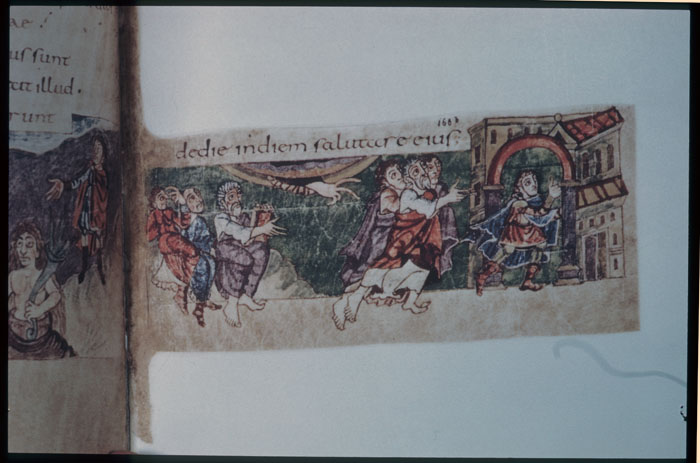 ae:
us sunt
illud.
runt
de die in diem salutare eius;